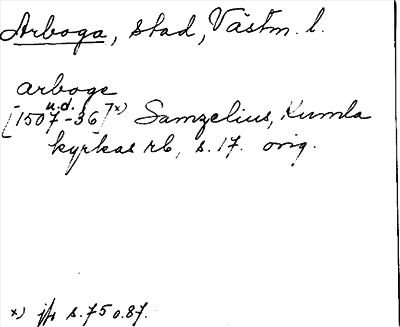 Arboga, stad, Västm. l.
arboge
[1507 u.d. -36] x) Samzelius, Kumla
kyrkas rb, s. 17. orig.
x) jfr s. 75 o. 87.